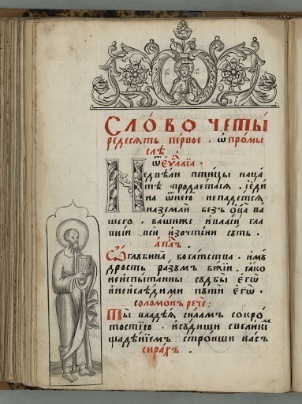 Сло́во четы́
редесять первое · ѿ промы
слѣ
ѿ еѵⷢ҇алїа ·
Не двѣли птицы паца
тѣ продаетася, і еди
на ѿ нею не падетса
на землй без̾ ѻ҆ц҃а ва
шего · ва́мже и власи гла
внїи всѝ изочтени сꙋть ·
ап҃лъ ·
Ѽ глꙋбина̀ богатства · и мꙋ
дрость и разꙋмъ бж҃їй · ꙗко
не испытанны сꙋдбы є҆гѡ̀
и неизслѣдими пꙋтиѐ є҆гѡ̀ ·
соломонъ рече :
Ты̀ влады́ѧ силамъ со кро
тостїю · и сꙋдиши и с великимъ
щадѣнїемъ строиши насъ
сирахъ ·